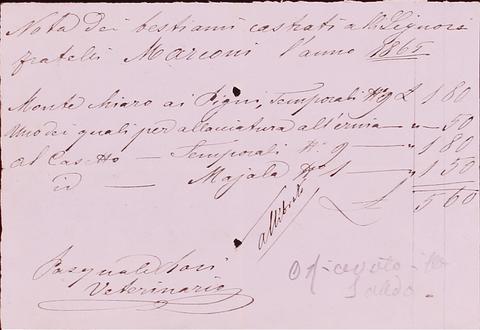 Nota dei bestiami castrati alli Signori
fratelli Marconi l'anno 1865
Monte Chiaro ai Pigni, Temporali N° 9 £ 1 80
Uno dei quali per allacciatura all'ernia — " — 50
Al Cas-tto — Temporali N° 9 — " 1 80
id — Majala N° 1 — " 1 50
£ 5 60
allibrato
Pasquale
Veterinario
Saldo